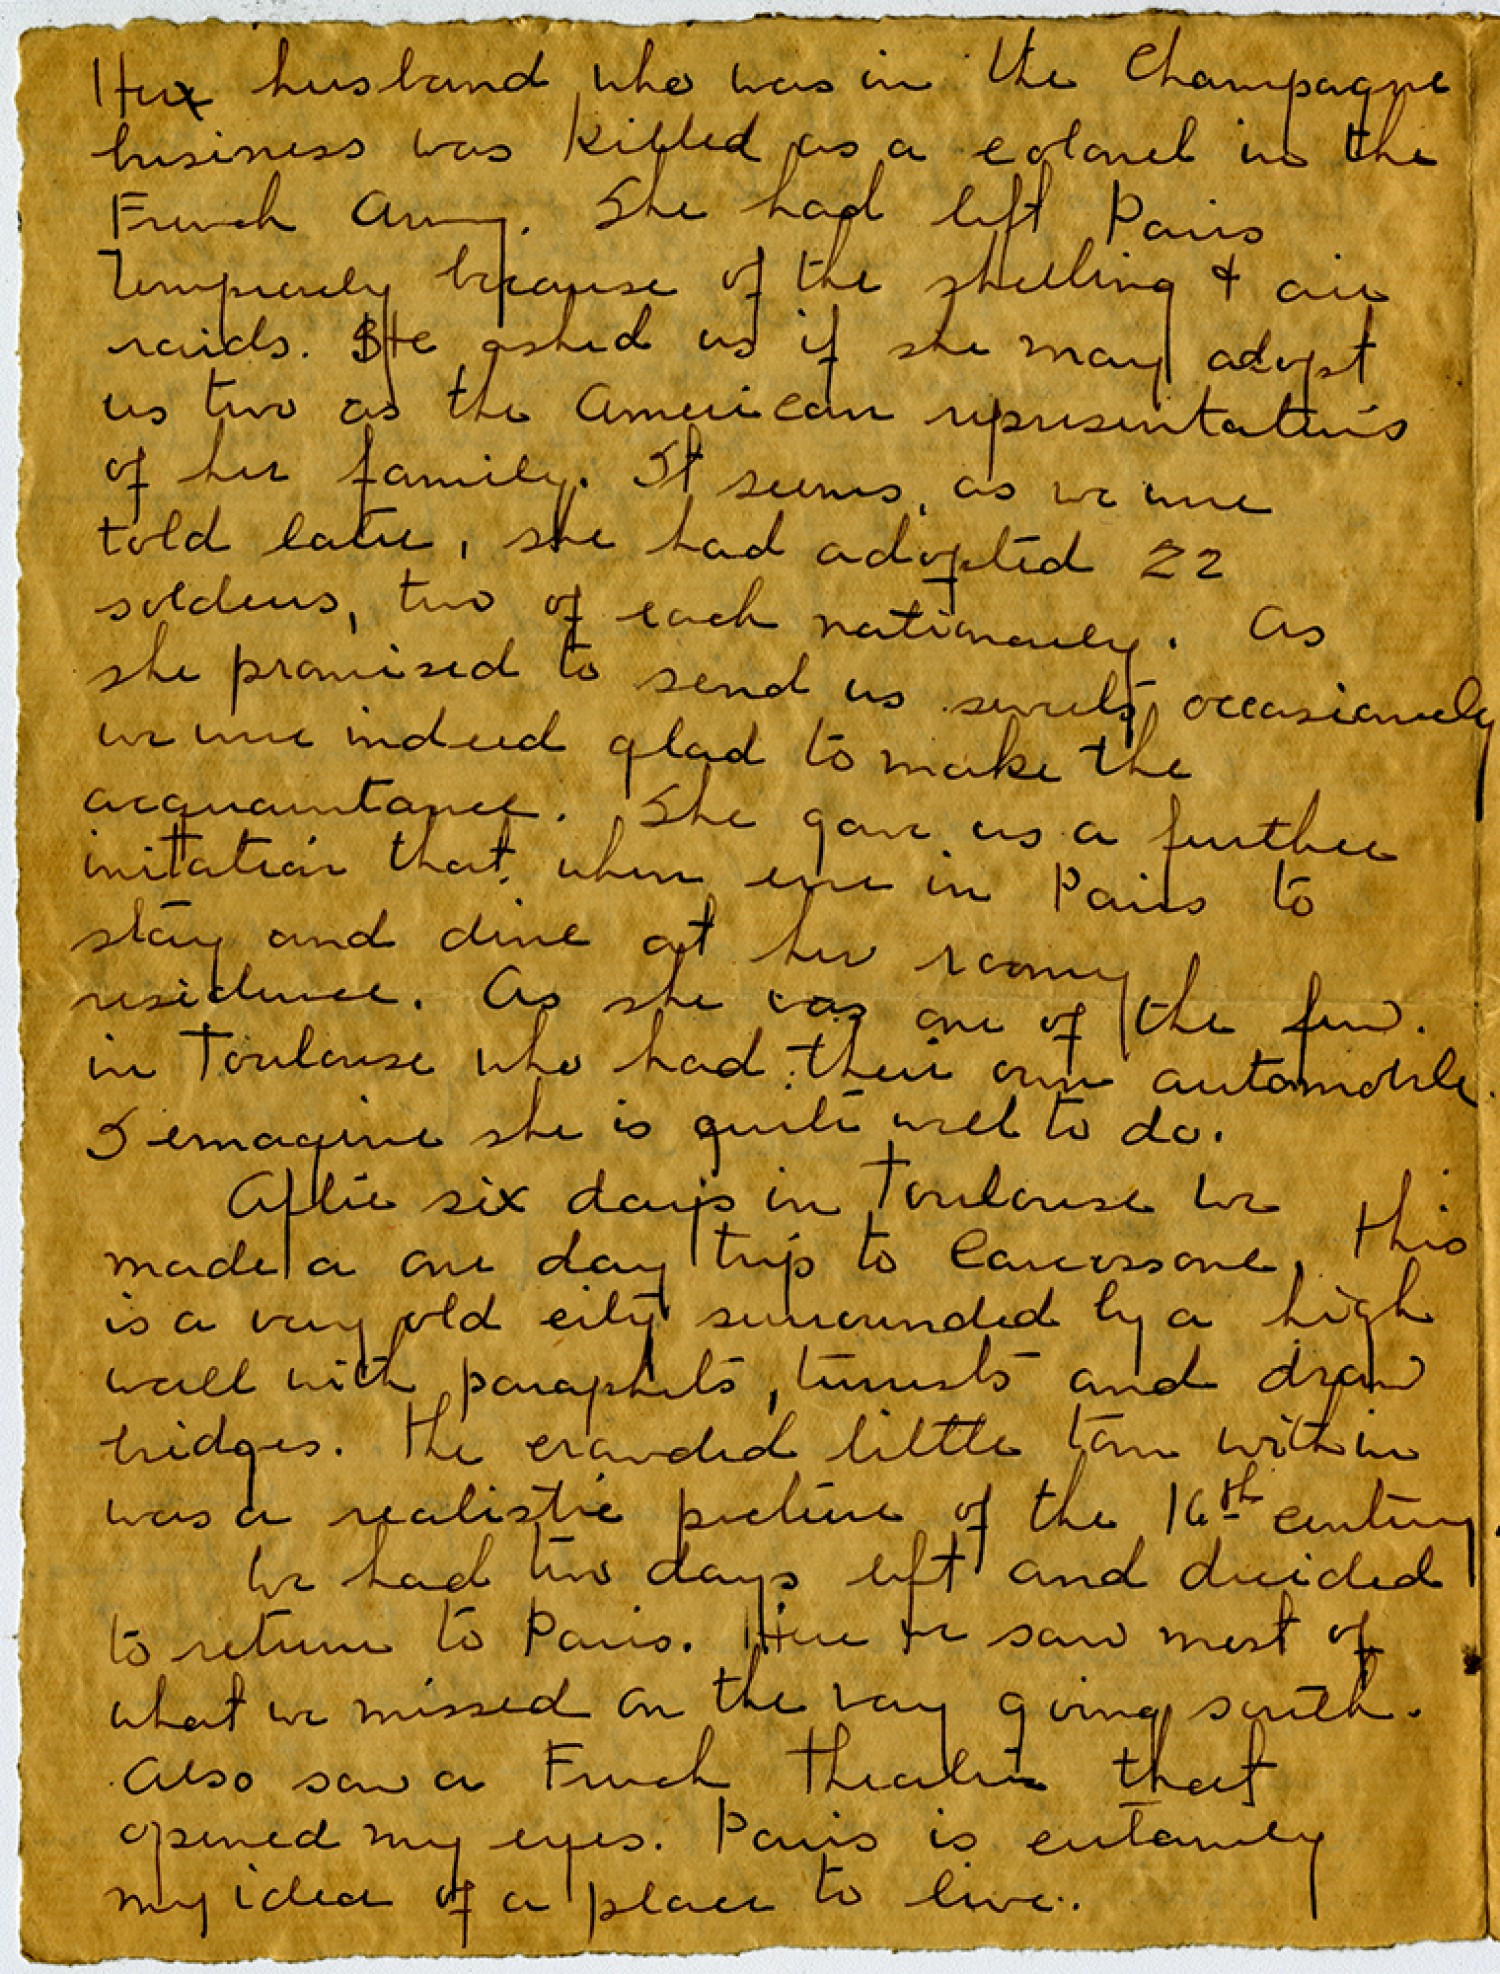 Her husband who was in the Champagne
business was killed as a colonel in the
French Army. She had left Paris
temporarely because of the shelling & air
raids. She asked us if she may adopt
us two as the American representatives
of her family. It seems, as we were
told later, she had adopted 22
soldiers, two of each nationality. As
she promised to send us sweets occasionely
we were indeed glad to make the
acquaintance. She gave us a further
initation that, when ever in Paris to
stay and dine at her roomy
residence. As she was one of the few
in Toulouse who had their own automobile.
I emagine she is quite well to do.
After six days in Toulouse we
made a one day trip to Carcossone, this
is a very old city surrounded by a high
wall with paraphets, turrets and draw
bridges. The crowded little town within
was a realistic picture of the 16th century.
We had two days left and decided
to return to Paris. Here we saw most of
what we missed on the way going south.
Also saw a French theatre that
opened my eyes. Paris is certainly
my idea of a place to live.